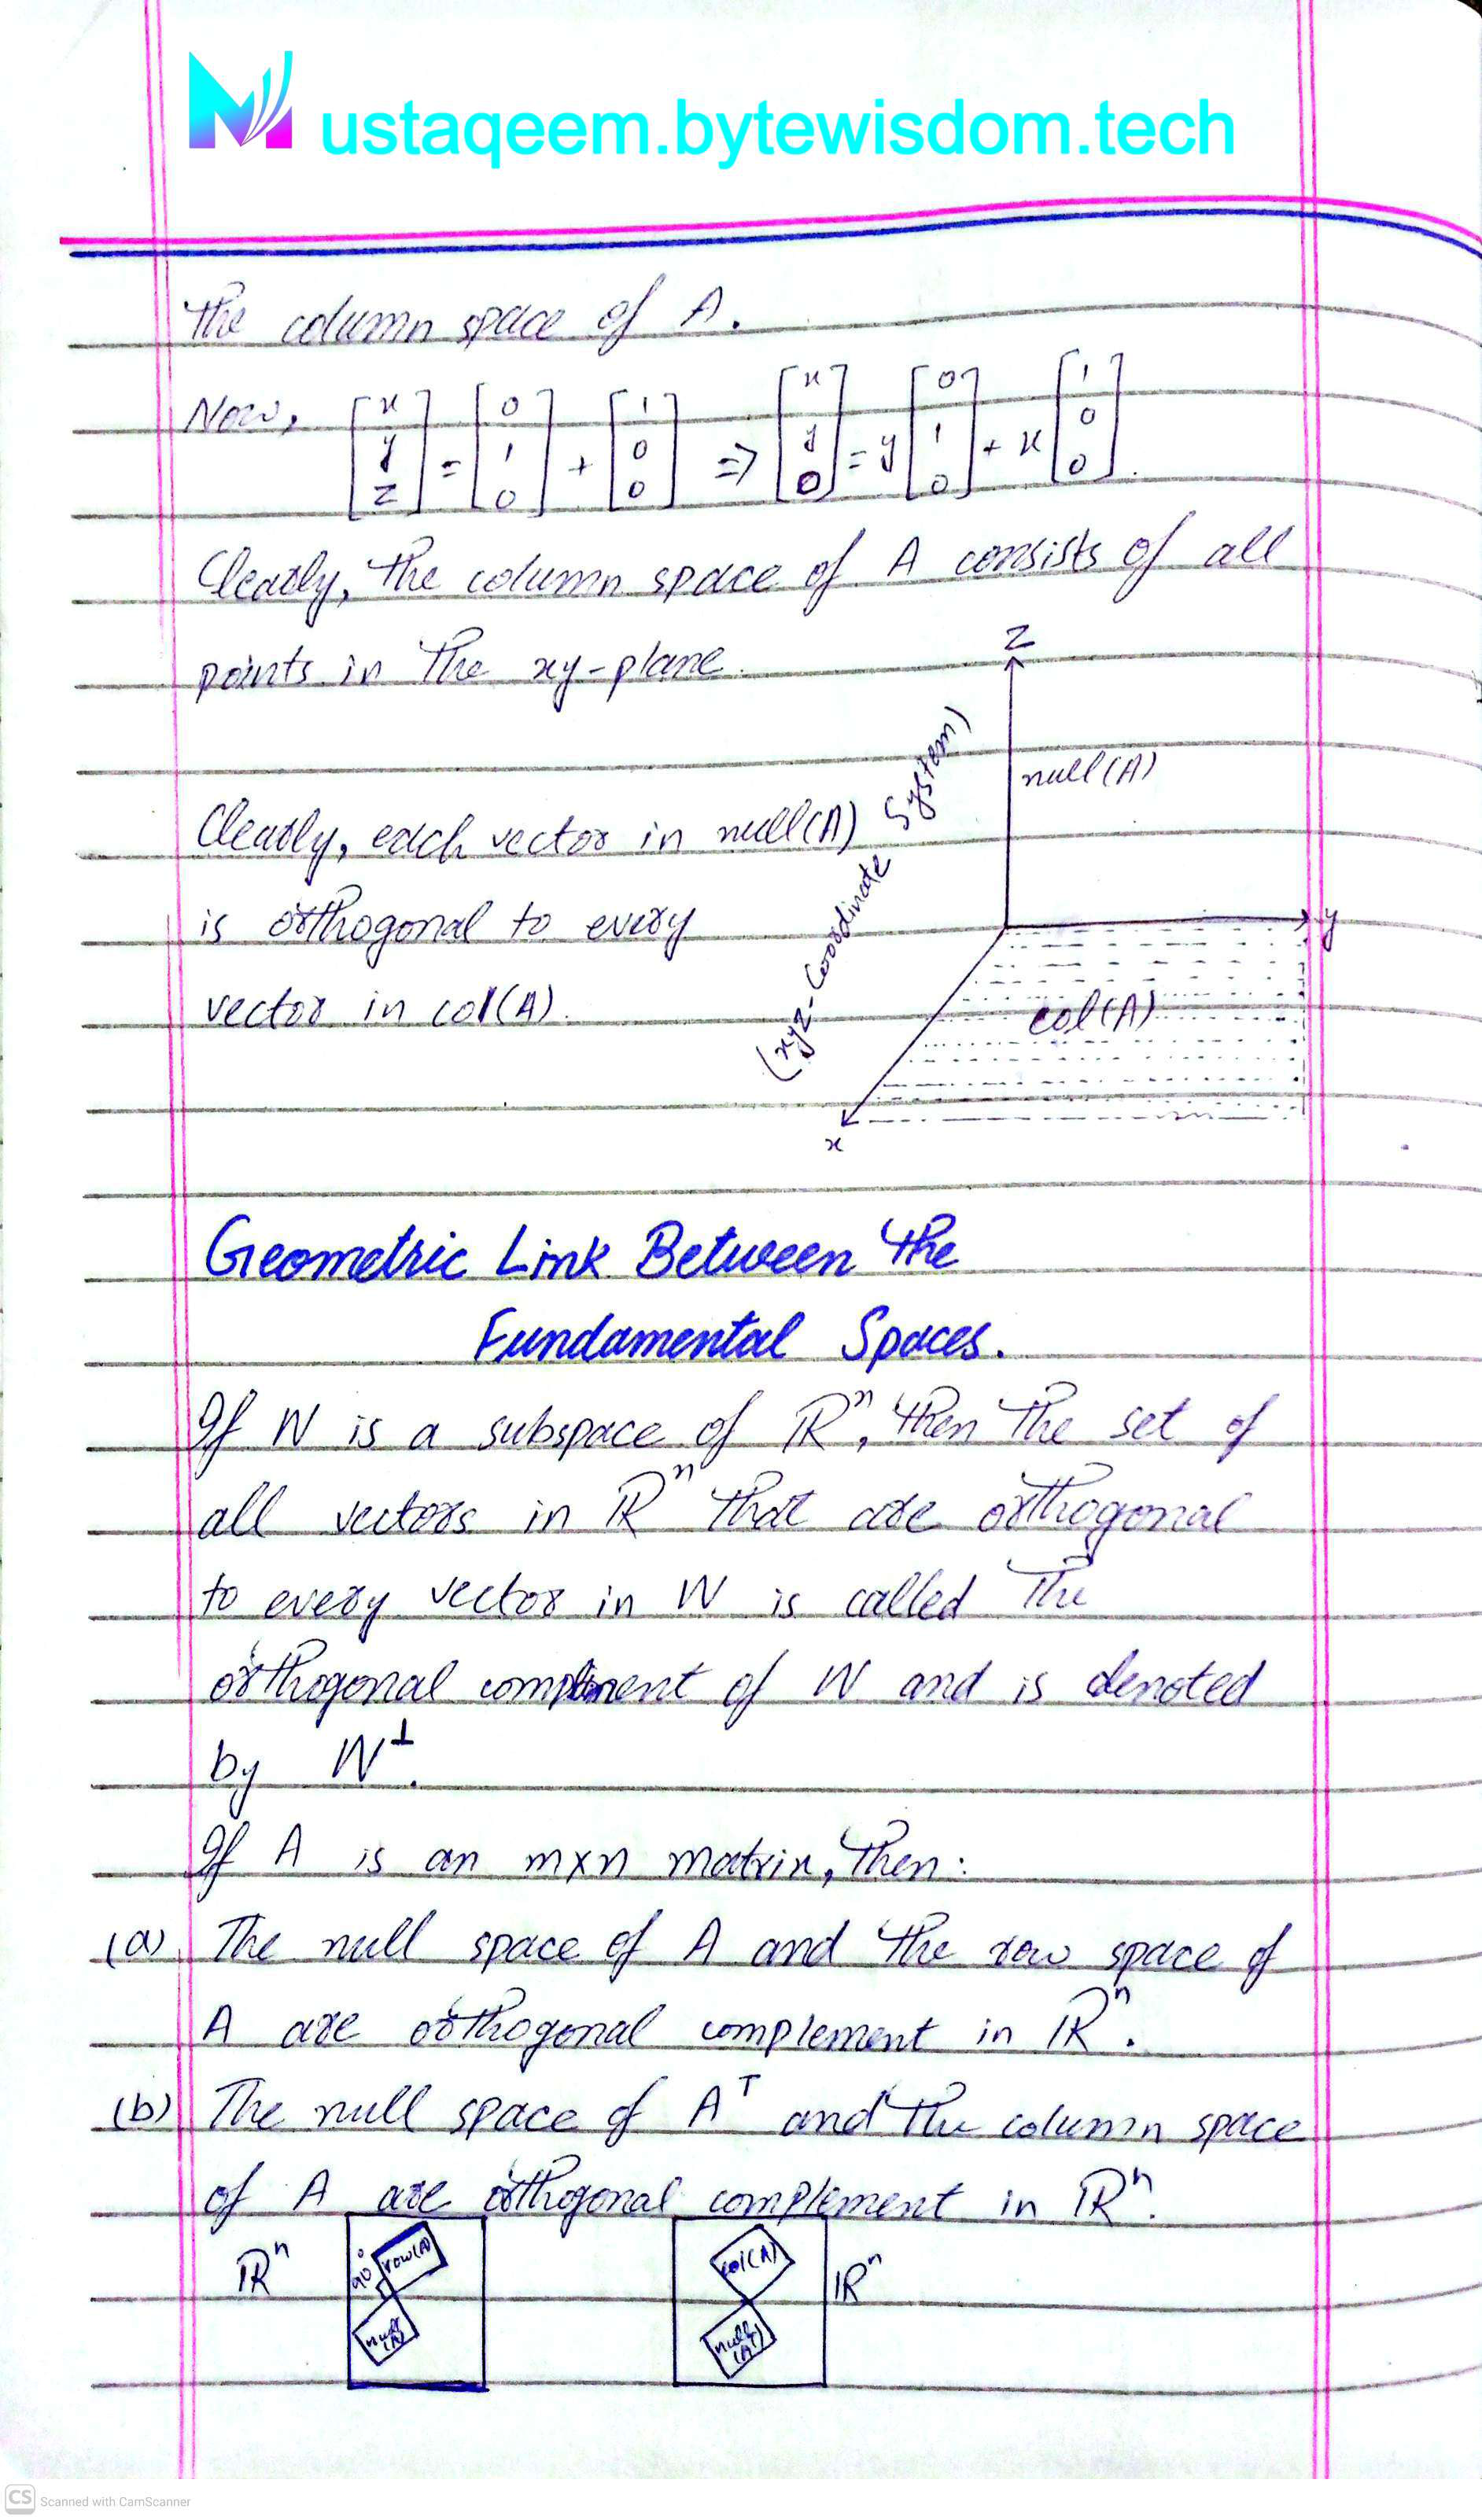 Mustaqeem.bytewisdom.tech
The column space of A.
Now, [x y z] = [0 1 0] + [1 0 0] => [x y 0] = y [0 1 0] + x [1 0 0].
Clearly, the column space of A consists of all
points in the xy-plane.
z
null(A)
(xyz-Coordinate System)
Clearly, each vector in null(A)
is orthogonal to every
y
vector in col(A).
col(A)
x
Geometric Link Between the
Fundamental Spaces.
If W is a subspace of ℝⁿ, then the set of
all vectors in ℝⁿ that are orthogonal
to every vector in W is called the
orthogonal complinent of W and is denoted
by W⊥.
If A is an m×n matrix, then:
(a) The null space of A and the row space of
A are orthogonal complement in ℝⁿ.
(b) The null space of Aᵀ and the column space
of A are orthogonal complement in ℝⁿ.
ℝⁿ 90° row(A) null(A)
col(A) null(Aᵀ) ℝⁿ
CS Scanned with CamScanner